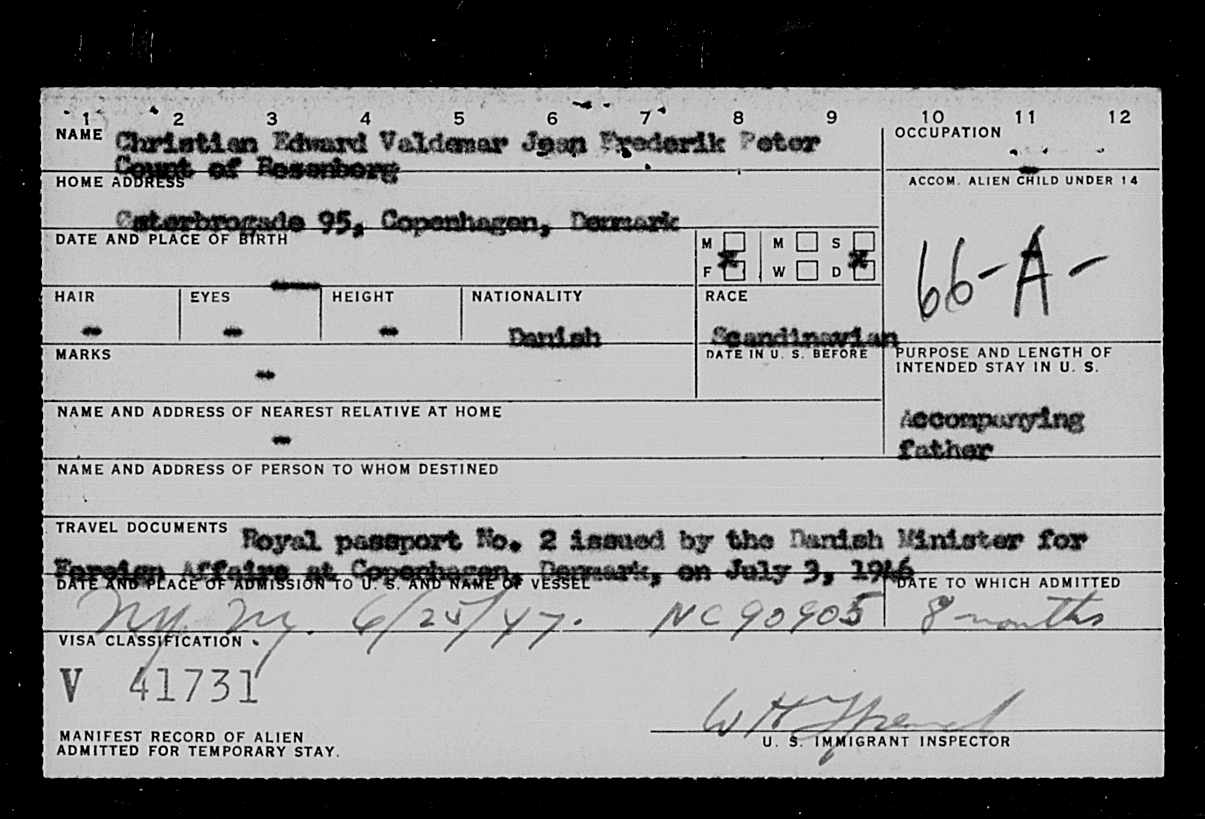 1 2 3 4 5 6 7 8 9 10 11 12
NAME Christian Edward Valdemar Jean Frederik Peter
Count of Rosenborg
OCCUPATION
-
HOME ADDRESS
Osterbrogade 95, Copenhagen, Denmark
ACCOM. ALIEN CHILD UNDER 14
66-A-
DATE AND PLACE OF BIRTH
M M S
F X W D X
HAIR EYES HEIGHT NATIONALITY RACE
- - - Danish Scandinavian
MARKS
-
DATE IN U. S. BEFORE
PURPOSE AND LENGTH OF
INTENDED STAY IN U. S.
Accompanying
father
NAME AND ADDRESS OF NEAREST RELATIVE AT HOME
-
NAME AND ADDRESS OF PERSON TO WHOM DESTINED
TRAVEL DOCUMENTS Royal passport No. 2 issued by the Danish Minister for
Foreign Affairs at Copenhagen, Denmark, on July 3, 1946
DATE AND PLACE OF ADMISSION TO U. S. AND NAME OF VESSEL
DATE TO WHICH ADMITTED
N.Y. N.Y. 6/25/47. NC90905 8 months
VISA CLASSIFICATION
V 41731
MANIFEST RECORD OF ALIEN
ADMITTED FOR TEMPORARY STAY.
U. S. IMMIGRANT INSPECTOR